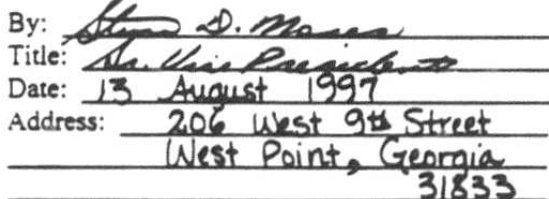 By: Steven D. Moses
Title: Sr. Vice President
Date: 13 August 1997
Address: 206 West 9th Street
West Point, Georgia
31833